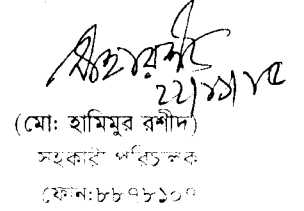 ২২/১১/১৫
(মো: হামিমুর রশীদ)
সহকারী পরিচালক
ফোন:৮৮৭৮১০৭